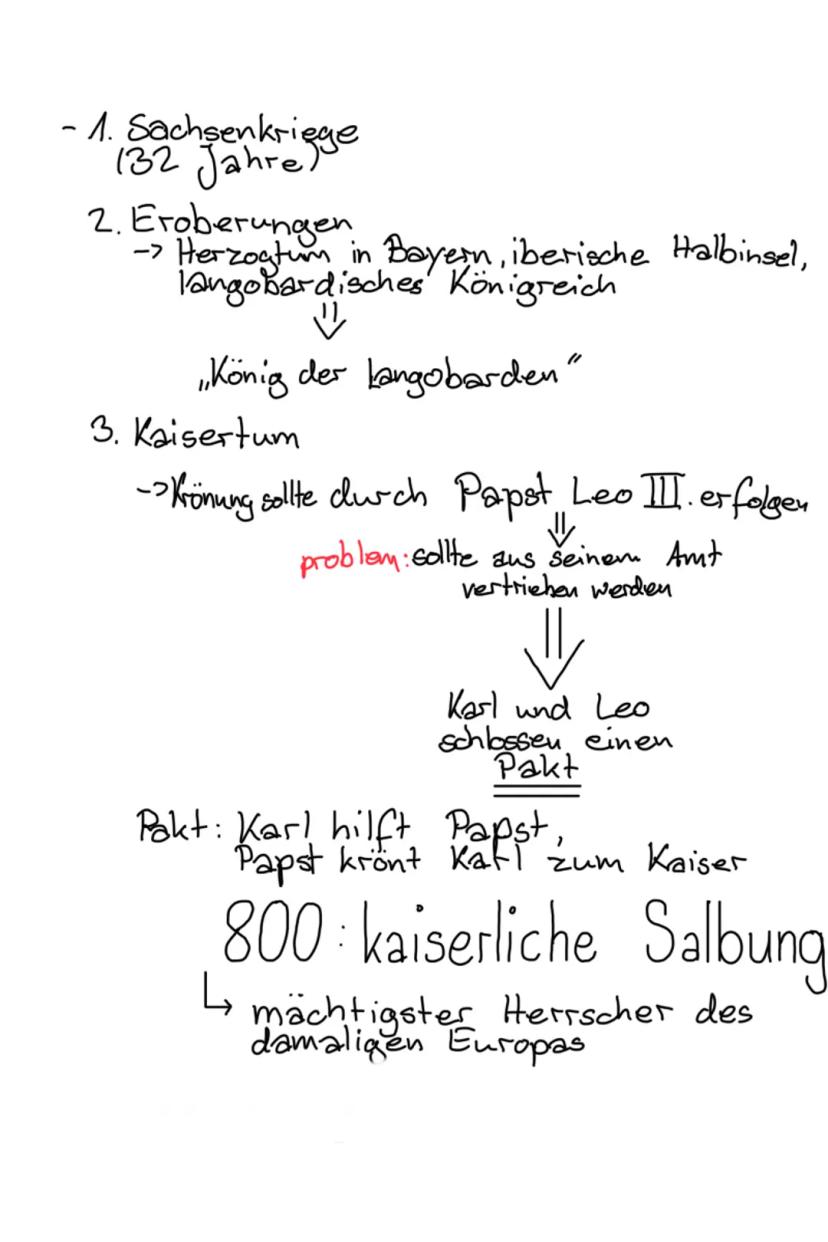 - 1. Sachsenkriege
(32 Jahre)
2. Eroberungen
-> Herzogtum in Bayern, iberische Halbinsel,
langobardisches Königreich
⇓
„König der Langobarden“
3. Kaisertum
-> Krönung sollte durch Papst Leo III. erfolgen
⇓
problem: sollte aus seinem Amt
vertrieben werden
⇓
Karl und Leo
schlossen einen
Pakt
Pakt: Karl hilft Papst,
Papst krönt Karl zum Kaiser
800: kaiserliche Salbung
↳ mächtigster Herrscher des
damaligen Europas